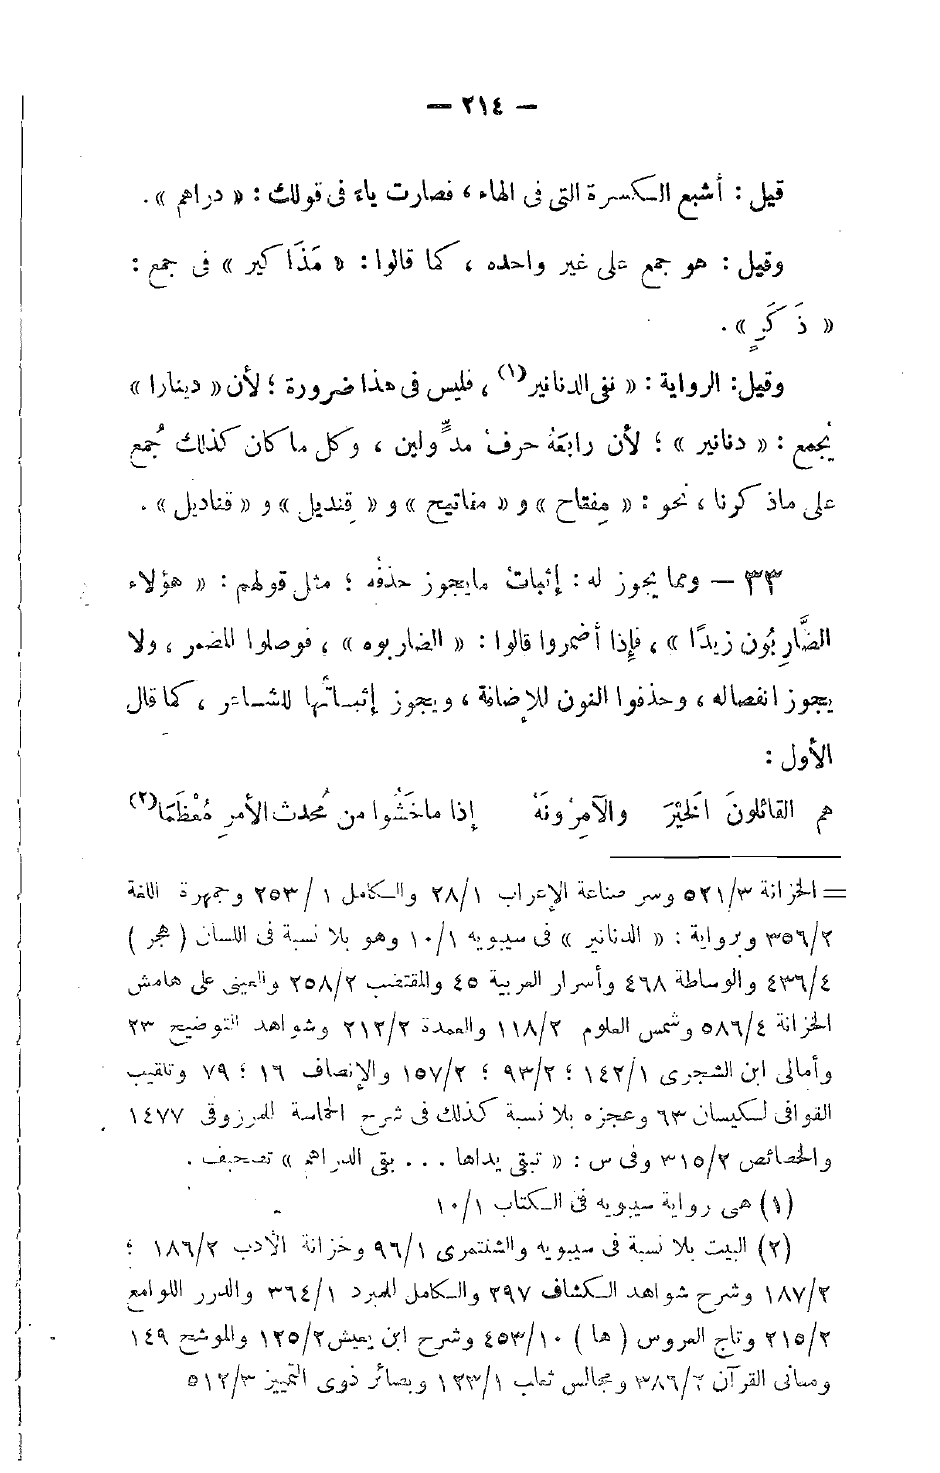 — ٢١٤ —
قيل : أشبع الكسرة التى فى الهاء ، فصارت ياءً فى قولك : « دراهم » .
وقيل : هو جمع على غير واحده ، كما قالوا : « مَذَاكير » فى جمع :
« ذَكَرٍ » .
وقيل : الرواية : « نفى الدنانير (١) ، فليس فى هذا ضرورة ؛ لأن « دينارا »
يُجمع : « دنانير » ؛ لأن رابعَهُ حرفُ مدٍّ ولين ، وكل ما كان كذلك جُمع
على ماذكرنا ، نحو : « مِفتاح » و « مفاتيح » و « قِنديل » و « قناديل » .
٣٣ — ومما يجوز له : إثباتُ مايجوز حذفُه ؛ مثل قولهم : « هؤلاء
الضَّارِبُون زيدًا » ، فإذا أضمروا قالوا : « الضاربوه » ، فوصلوا المضمر ، ولا
يجوز انفصاله ، وحذفوا النون للإضافة ، ويجوز إثباتُها للشاعر ، كما قال
الأول :
هم القائلونَ الخَيْرَ والآمِرُونَهُ إذا ماخَشُوا من مُحدث الأمرِ مُعْظَمَا (٢)
= الخزانة ٥٢١/٣ وسر صناعة الإعراب ٢٨/١ والكامل ٢٥٣/١ وجمهرة اللغة
٣٥٦/٢ وبرواية : « الدنانير » فى سيبويه ١٠/١ وهو بلا نسبة فى اللسان ( هجر )
٤٣٦/٤ والوساطة ٤٦٨ وأسرار العربية ٤٥ والمقتضب ٢٥٨/٢ والعينى على هامش
الخزانة ٥٨٦/٤ وشمس العلوم ١١٨/٢ والعمدة ٢١٢/٢ وشواهد التوضيح ٢٣
وأمالى ابن الشجرى ١٤٢/١ ؛ ٩٣/٢ ؛ ١٥٧/٢ والإنصاف ١٦ ؛ ٧٩ وتلقيب
القوافى لكيسان ٦٣ وعجزه بلا نسبة كذلك فى شرح الحماسة للمرزوقى ١٤٧٧
والخصائص ٣١٥/٢ وفى س : « تبقى يداها ... بقى الدراهم » تصحيف .
(١) هى رواية سيبويه فى الكتاب ١٠/١
(٢) البيت بلا نسبة فى سيبويه والشنتمرى ٩٦/١ وخزانة الأدب ١٨٦/٢ ؛
١٨٧/٢ وشرح شواهد الكشاف ٢٩٧ والكامل للمبرد ٣٦٤/١ والدرر اللوامع
٢١٥/٢ وتاج العروس ( ها ) ٤٥٣/١٠ وشرح ابن يعيش ١٢٥/٢ والموشح ١٤٩
ومعانى القرآن ٣٨٦/٢ ومجالس ثعلب ١٢٣/١ وبصائر ذوى التمييز ٥١٢/٣